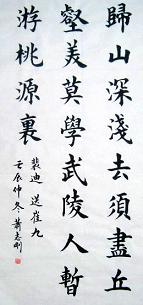 歸山深淺去須盡丘
壑美莫學武陵人暫
游桃源裏
裴迪 送崔九
壬辰仲冬 蕭志剛